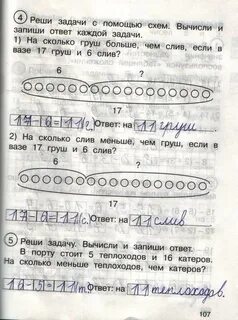 4 Реши задачи с помощью схем. Вычисли и
запиши ответ каждой задачи.
1) На сколько груш больше, чем слив, если в
вазе 17 груш и 6 слив?
6 ?
17
17-6=11г. Ответ: на 11 груш
2) На сколько слив меньше, чем груш, если в
вазе 17 груш и 6 слив?
6 ?
17
17-6=11с. Ответ: на 11 слив
5 Реши задачу. Вычисли и запиши ответ.
В порту стоит 5 теплоходов и 16 катеров.
На сколько меньше теплоходов, чем катеров?
16-5=11т. Ответ: на 11 теплоходов.
107